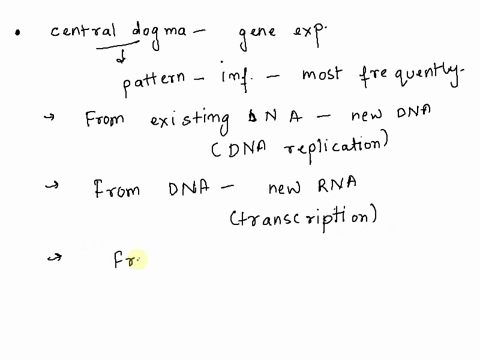 • central dogma - gene exp.
↓
pattern - inf. - most frequently.
→ From existing DNA - new DNA
(DNA replication)
→ From DNA - new RNA
(transcription)
→ Fr